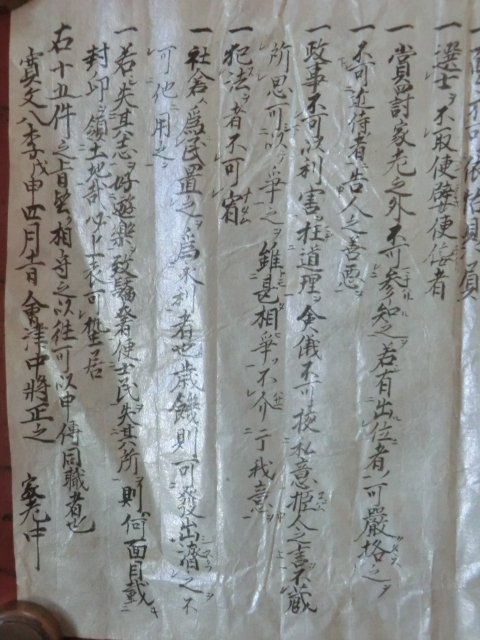 一面々不可依怙贔屓
一選士不取便辟便佞者
一賞罰家老之外不可参知之若有出位者可嚴格之
一不可近侍者告人之善悪
一政事不可以利害枉道理僉儀不可挟私意拒人之言不蔵
所思可以争之雖甚相争不介于我意
一犯法者不可宥
一社倉為民置之為永利者也歳饑則可發出濟之不
可他用之
一若失其志好遊樂致驕奢使士民失其所則何面目戴
封印領土地哉必上表可蟄居
右十五件之旨堅相守之以往可以申傳同職者也
寛文八年戊申四月十一日會津中將正之 家老中